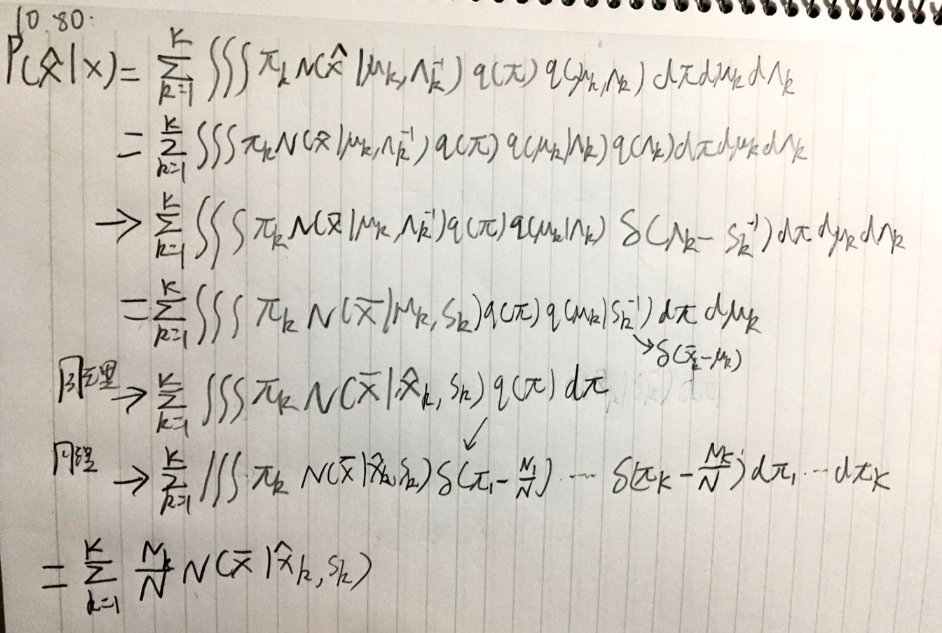 10.80:
P(x̂|x) = Σ_{k=1}^{K} ∭ π_k N(x̂|μ_k, Λ_k^{-1}) q(π) q(μ_k, Λ_k) dπ dμ_k dΛ_k
= Σ_{k=1}^{K} ∭ π_k N(x̂|μ_k, Λ_k^{-1}) q(π) q(μ_k|Λ_k) q(Λ_k) dπ dμ_k dΛ_k
→ Σ_{k=1}^{K} ∭ π_k N(x̂|μ_k, Λ_k^{-1}) q(π) q(μ_k|Λ_k) δ(Λ_k - S_k^{-1}) dπ dμ_k dΛ_k
= Σ_{k=1}^{K} ∭ π_k N(x̄|μ_k, S_k) q(π) q(μ_k|S_k^{-1}) dπ dμ_k
↘ δ(x̄_k - μ_k)
同理 → Σ_{k=1}^{K} ∭ π_k N(x̄|x̂_k, S_k) q(π) dπ
↙
同理 → Σ_{k=1}^{K} ∭ π_k N(x̄|x̂_k, S_k) δ(π_1 - N_1/N) ... δ(π_K - N_K/N) dπ_1 ... dπ_K
= Σ_{k=1}^{K} N_k/N N(x̄|x̂_k, S_k)